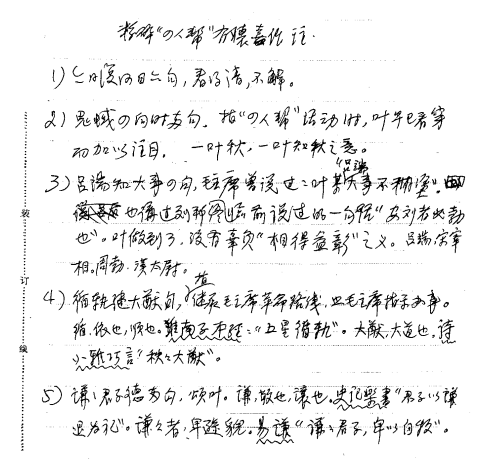 粉碎“四人帮”有懷喜作 注.
1)
句,君了清,不解。
2) 鬼蜮の向时为句,指“四人帮”活动时,叶早已看穿
而加以注目,一叶秋,一叶知秋之意。
3) 吕端知大事の句,毛主席曾说过:叶 吕端 大事不糊塗,
也讲过刘邦临终前说过的一句话“安刘者必勃
也”。叶做到了,没有辜负“相得益彰”之义。吕端:宋宰
相。周勃:漢太尉。
4) 循軌继大猷句,指 继承毛主席革命路线,照毛主席指示办事。
循,依也,顺也。淮南子本经:“五星循軌”。大猷,大道也,诗
小雅巧言“秩秩大猷”。
5) 谦谦君子德为句,颂叶。谦,敬也,讓也。史记樂書“君子以谦
退为礼”。谦谦者,卑遜貌。易谦“谦谦君子,卑以自牧”。
装
订
线